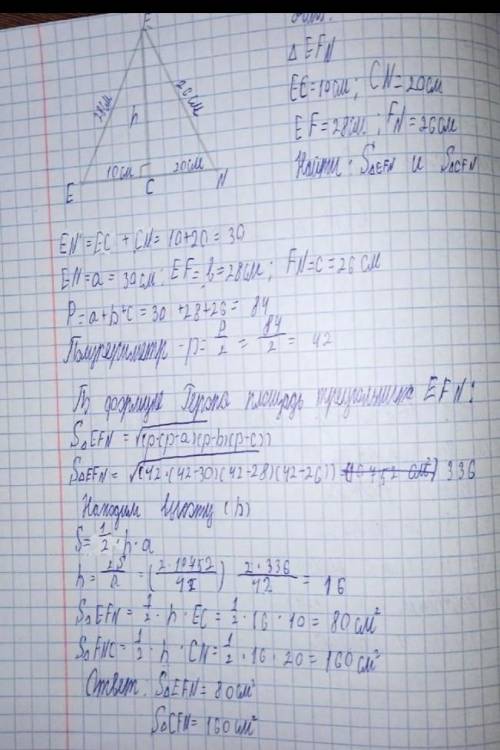 F
28см
26см
h
10см
20см
E
C
N
△ EFN
EC=10см; CN=20см
EF=28см; FN=26см
Найти: S△EFN и S△CFN
EN=EC + CN= 10+20= 30
EN=a= 30см; EF=b=28см; FN=c=26 см
P=a+b+c= 30 +28+26= 84
Полупериметр -p= P/2 = 84/2 = 42
По формуле Герона площадь треугольника EFN:
S△EFN = √(p·(p-a)(p-b)(p-c))
S△EFN= √(42·(42-30)(42-28)(42-26)) 336
Находим высоту (h)
S= 1/2 · h · a
h= 2S/a = (2·10452/42) 2·336/42 = 16
S△EFN= 1/2 · h · EC= 1/2 · 16 · 10= 80см²
S△FNC= 1/2 · h · CN= 1/2 · 16 · 20= 160см²
Ответ: S△EFN= 80см²
S△CFN= 160см²